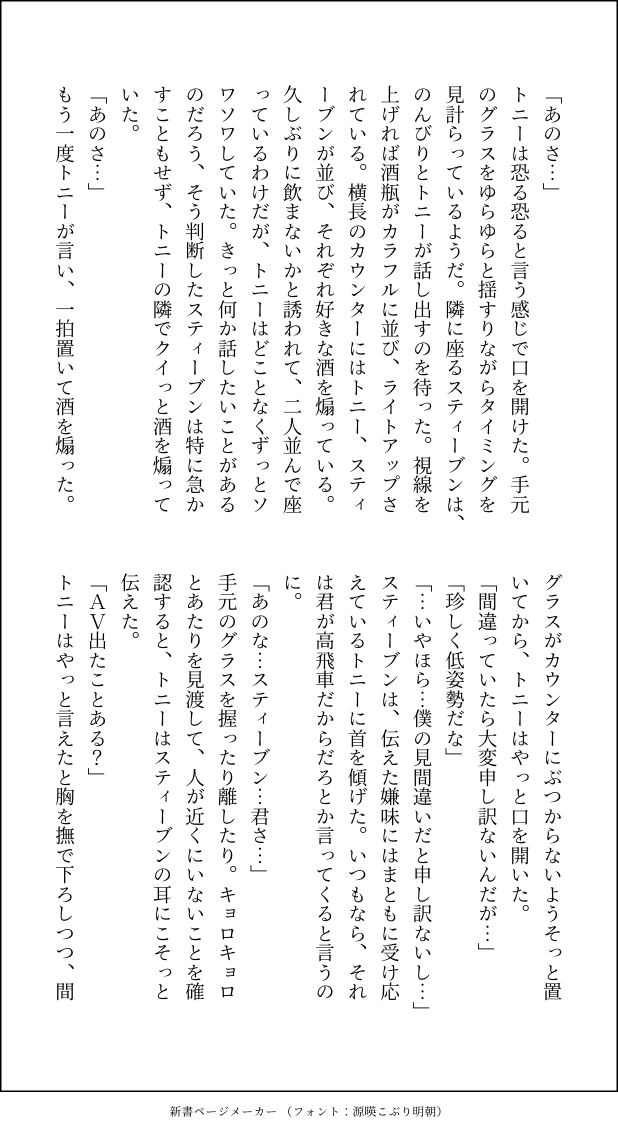 「あのさ…」
トニーは恐る恐ると言う感じで口を開けた。手元
のグラスをゆらゆらと揺すりながらタイミングを
見計らっているようだ。隣に座るスティーブンは、
のんびりとトニーが話し出すのを待った。視線を
上げれば酒瓶がカラフルに並び、ライトアップさ
れている。横長のカウンターにはトニー、スティ
ーブンが並び、それぞれ好きな酒を煽っている。
久しぶりに飲まないかと誘われて、二人並んで座
っているわけだが、トニーはどことなくずっとソ
ワソワしていた。きっと何か話したいことがある
のだろう、そう判断したスティーブンは特に急か
すこともせず、トニーの隣でクイっと酒を煽って
いた。
「あのさ…」
もう一度トニーが言い、一拍置いて酒を煽った。
グラスがカウンターにぶつからないようそっと置
いてから、トニーはやっと口を開いた。
「間違っていたら大変申し訳ないんだが…」
「珍しく低姿勢だな」
「…いやほら…僕の見間違いだと申し訳ないし…」
スティーブンは、伝えた嫌味にはまともに受け応
えているトニーに首を傾げた。いつもなら、それ
は君が高飛車だからだろとか言ってくると言うの
に。
「あのな…スティーブン…君さ…」
手元のグラスを握ったり離したり。キョロキョロ
とあたりを見渡して、人が近くにいないことを確
認すると、トニーはスティーブンの耳にこそっと
伝えた。
「ＡＶ出たことある？」
トニーはやっと言えたと胸を撫で下ろしつつ、間
新書ページメーカー（フォント：源暎こぶり明朝）